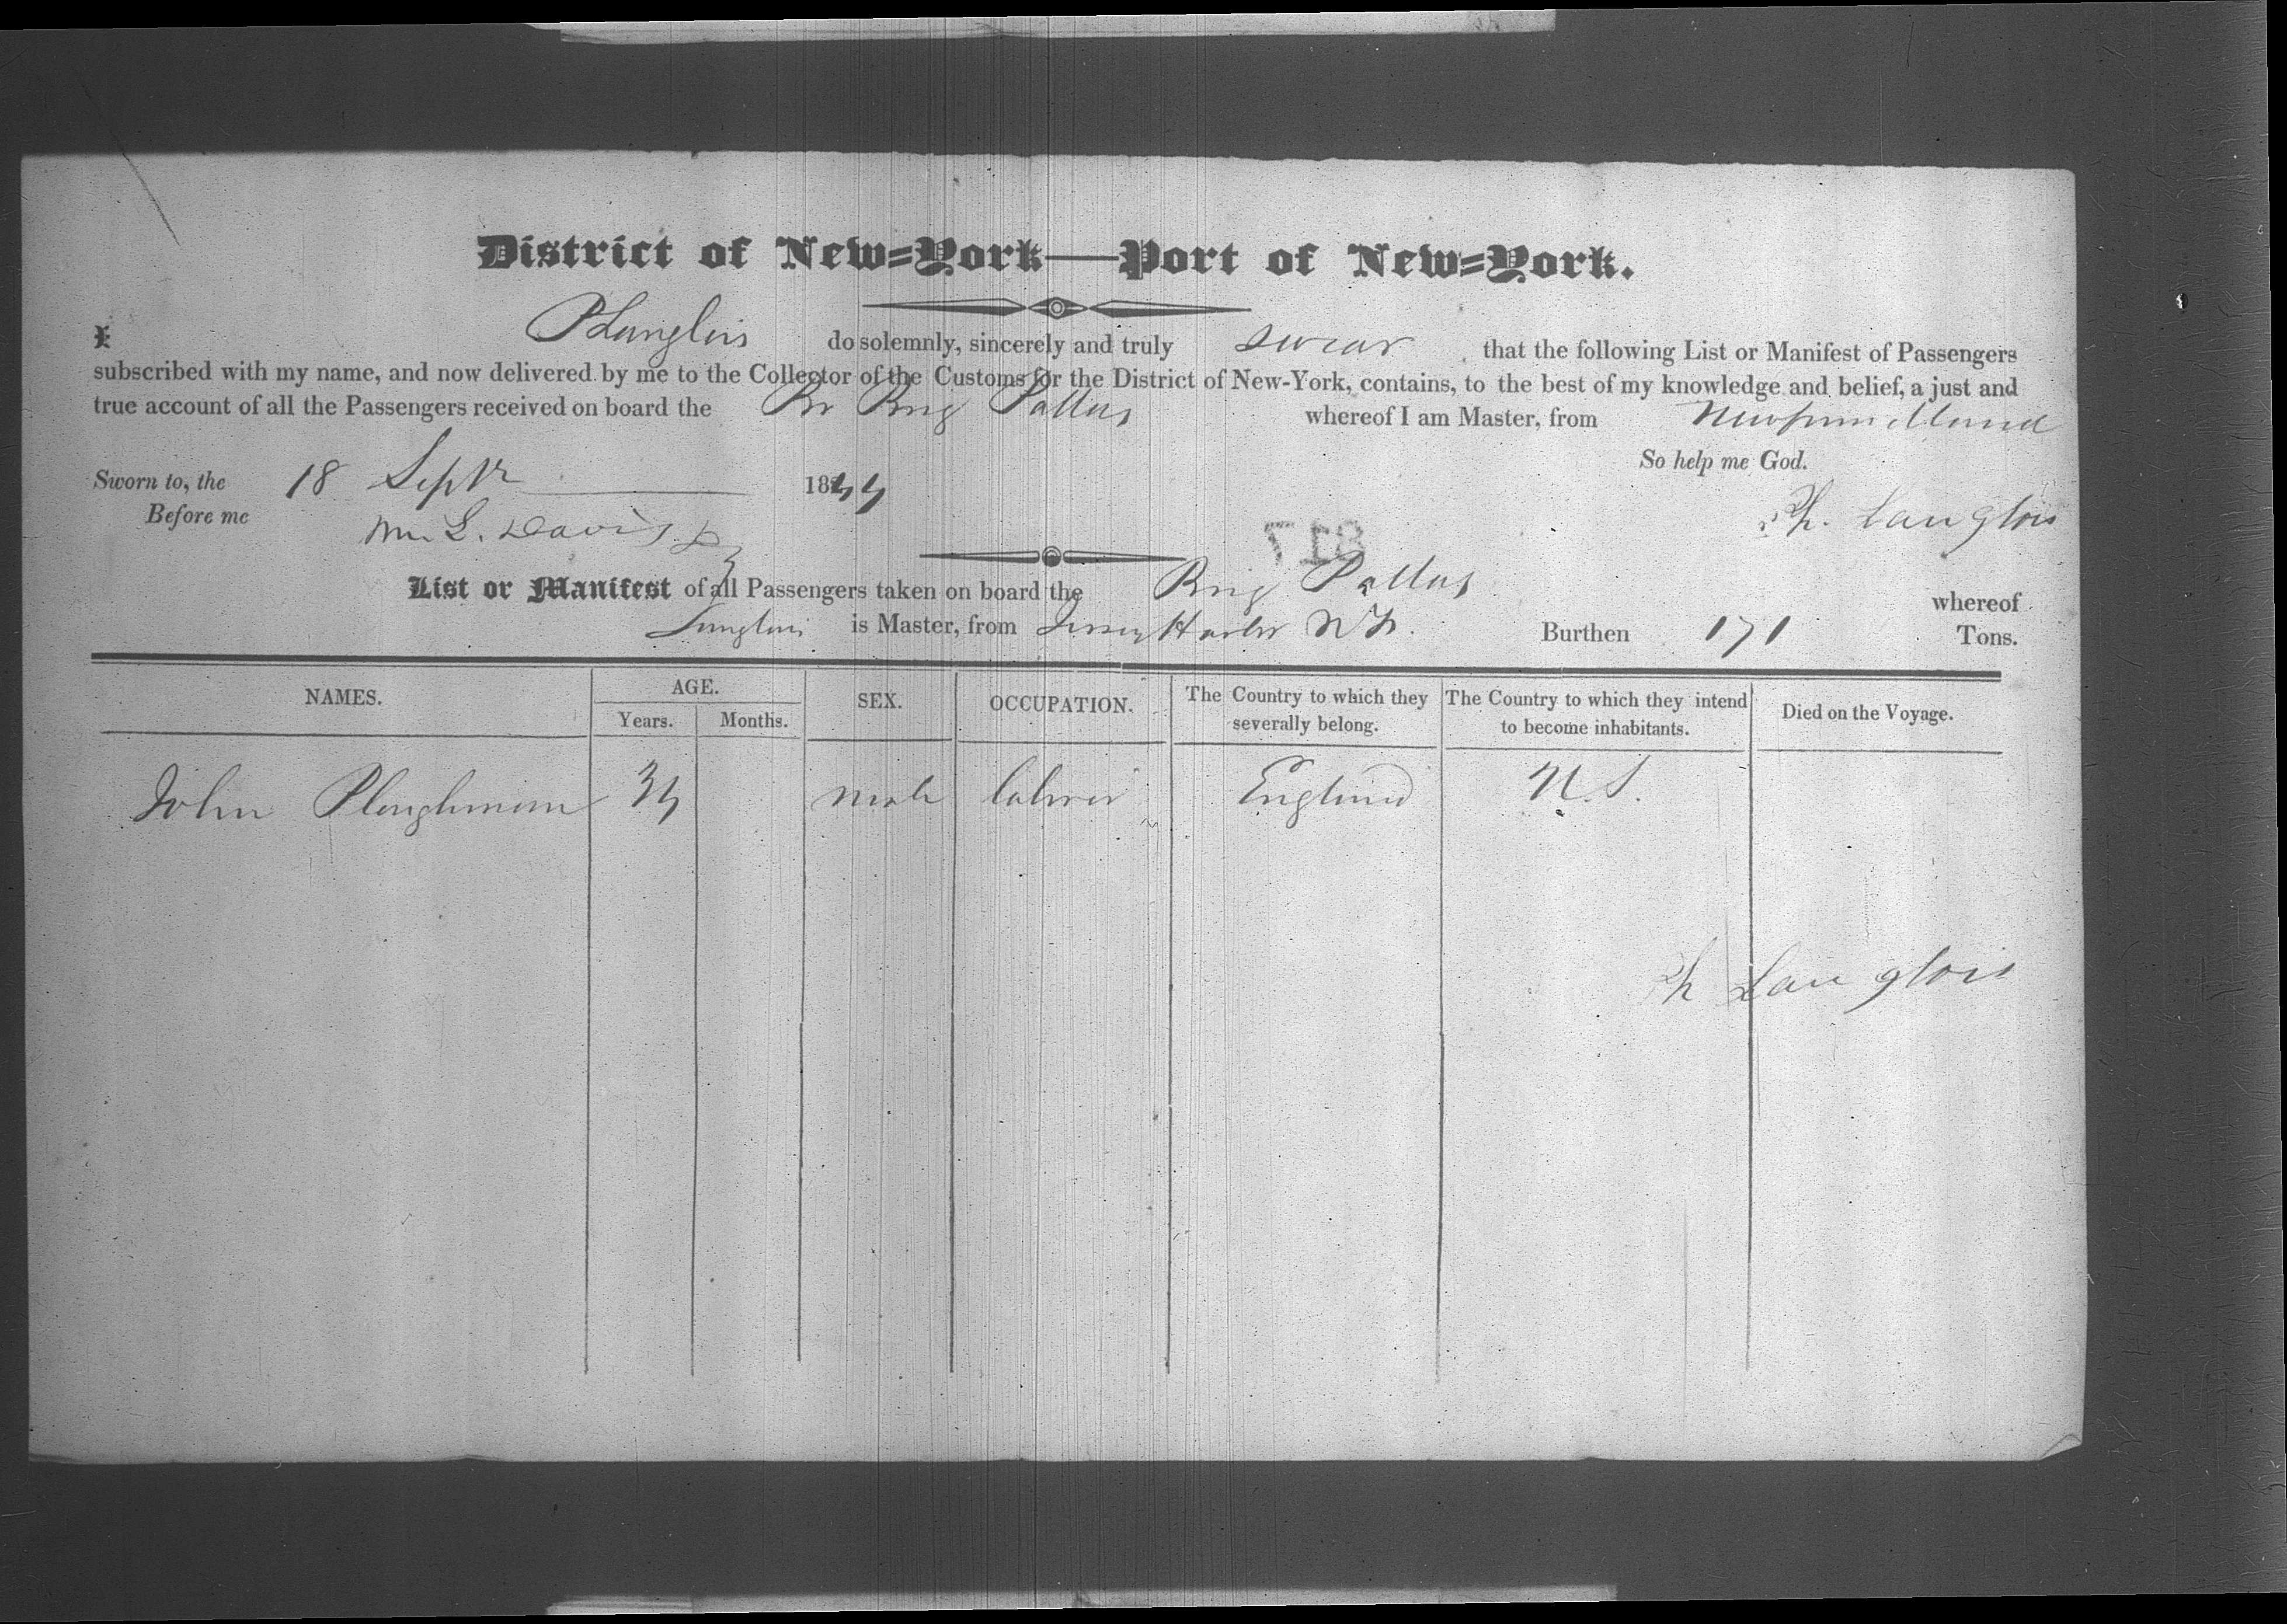 District of New=York—Port of New=York.
I P Langlois do solemnly, sincerely and truly swear that the following List or Manifest of Passengers
subscribed with my name, and now delivered by me to the Collector of the Customs for the District of New-York, contains, to the best of my knowledge and belief, a just and
true account of all the Passengers received on board the Br Brig Pallas whereof I am Master, from Newfoundland
So help me God.
Sworn to, the 18 Septr 1844
Before me M. L. Davis
Ph. Langlois
817
List or Manifest of all Passengers taken on board the Brig Pallas whereof
Langlois is Master, from Jersey Harbor N F. Burthen 171 Tons.
NAMES. AGE. SEX. OCCUPATION. The Country to which they severally belong. The Country to which they intend to become inhabitants. Died on the Voyage.
Years. Months.
John Ploughman 34 male labourer England U.S.
Ph Langlois